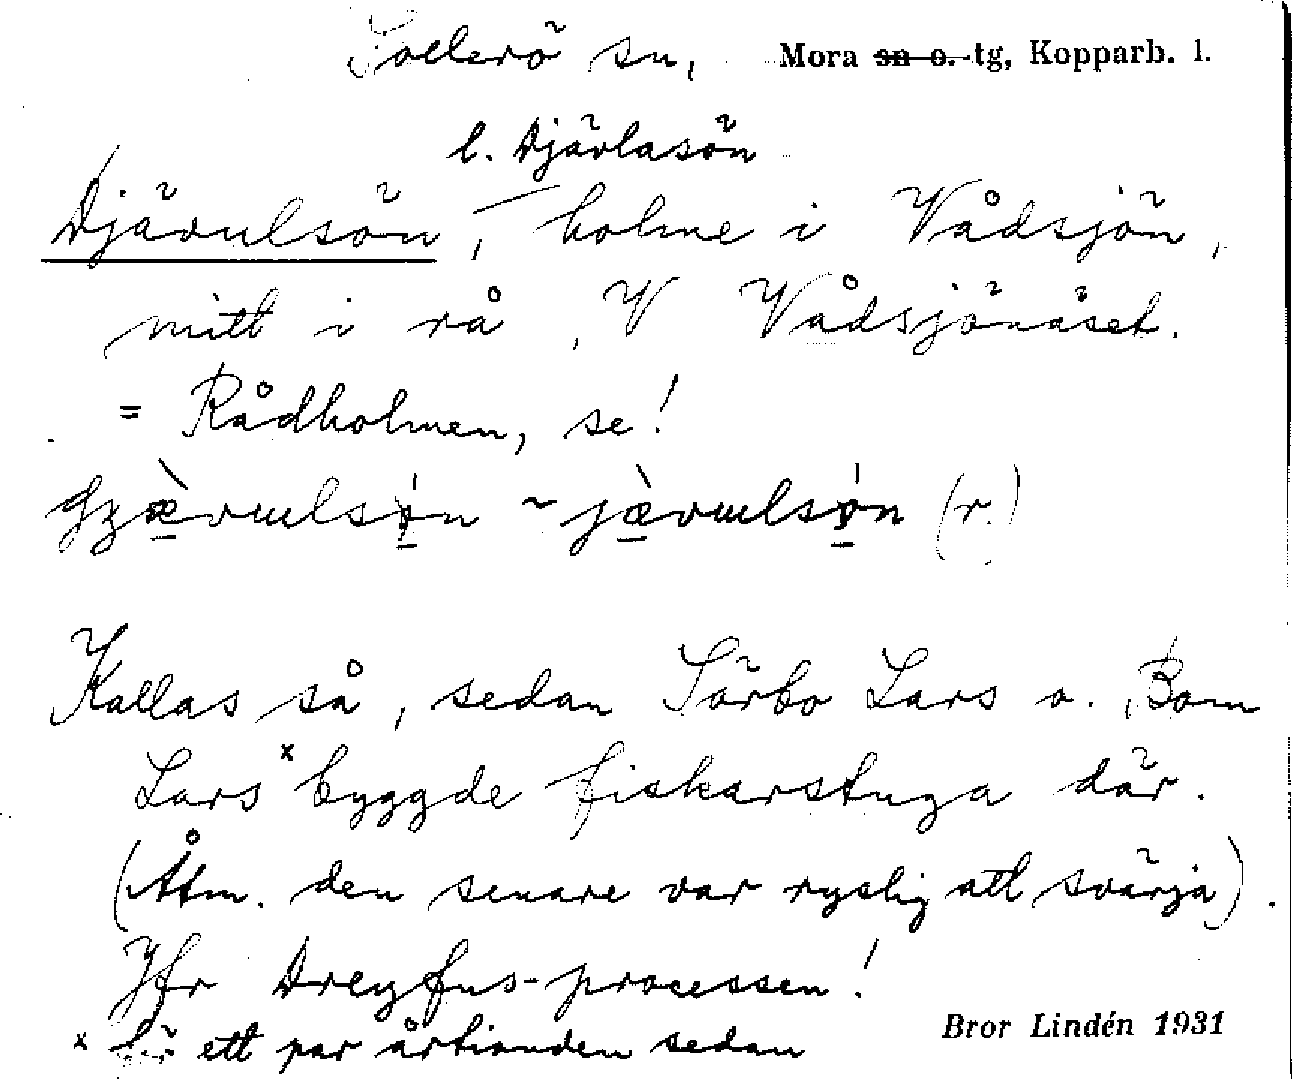 Sollerö sn, Mora sn o. tg, Kopparb. l.
l. Djävlasön
Djävulsön, holme i Vådsjön,
mitt i rå, V Vådsjönäset.
= Rådholmen, se!
(r.)
Kallas så, sedan Sörbo Lars o. Bom
Lars x byggde fiskarstuga där.
(Åtm. den senare var ryslig att svärja).
Jfr Dreyfus-processen!
x för ett par årtionden sedan
Bror Lindén 1931